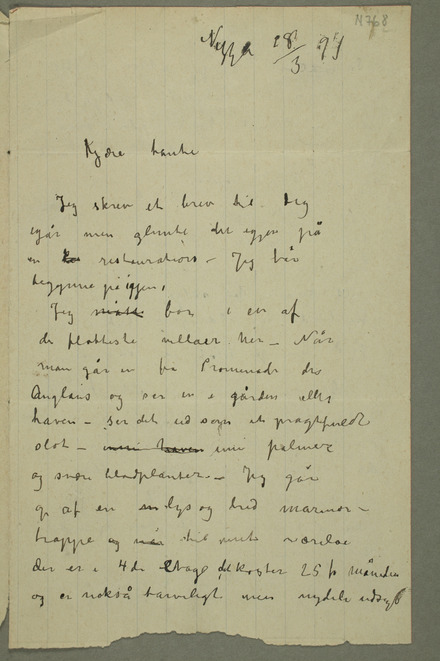 N 768
Nizza 28/3 91
Kjære tante
Jeg skrev et brev til Dig
igår men glemte det igjen på
en restauration – Jeg får
begynne på igjen,
Jeg bor i en af
de flotteste villaer her – Når
man går in fra Promenade des
Anglais og ser in i gården eller
haven – ser det ud som et pragtfuldt
slot – inni palmer
og svære bladplanter – Jeg går
op af en lys og bred marmor-
trappe og når til mit værelse
der er i 4de etage, det koster 25 fr måneden
og er nokså tarveligt men nydelig udsigt